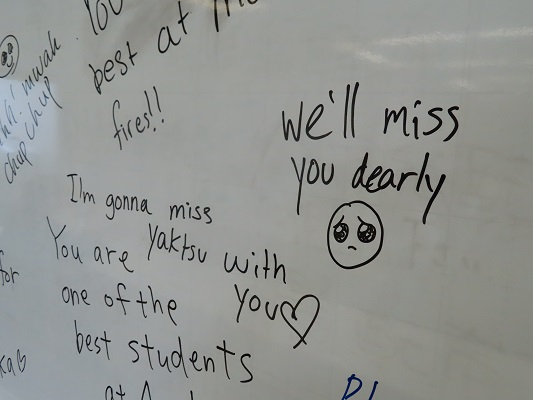 You
best at
fires!!
mwah.
chup chup
we'll miss
you dearly
I'm gonna miss
yaktsu with
you♡
You are
one of the
best students
at
for